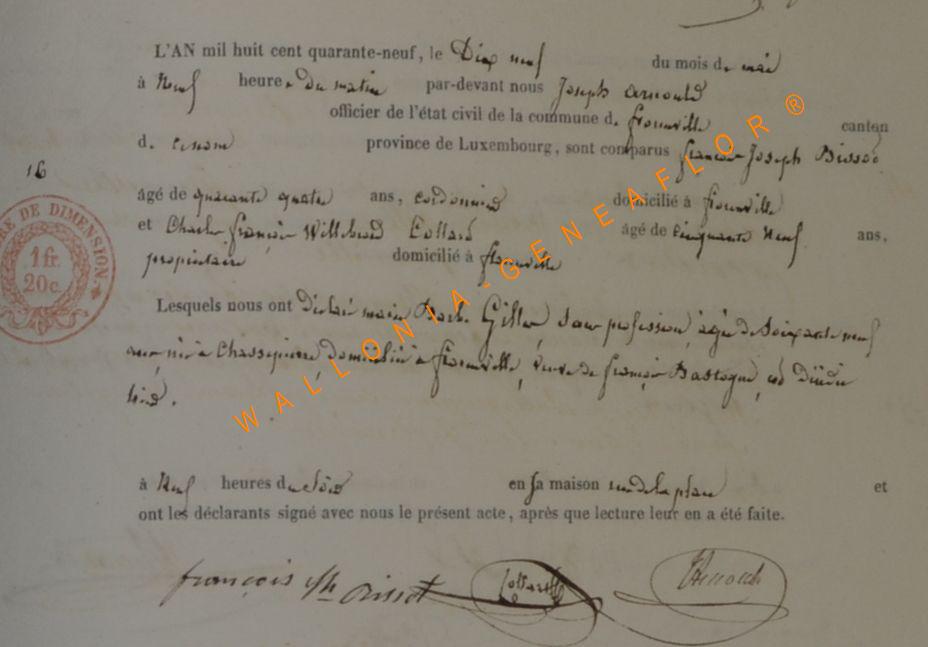 L'AN mil huit cent quarante-neuf, le Dix neuf du mois de mai
à Neuf heures du matin par-devant nous Joseph Arnould
officier de l'état civil de la commune de florenville canton
de province de Luxembourg, sont comparus françois Joseph
16
âgé de quarante quatre ans, cordonnier domicilié à florenville
et Charles françois Willebrord Collard âgé de Cinquante Neuf ans,
propriétaire domicilié à florenville
TIMBRE DE DIMENSION.
1 fr.
20 c.
Lesquels nous ont déclaré Marie Barbe Gillet, Sans profession, âgée de Soixante neuf
ans, née à Chassepierre, domiciliée à florenville, veuve de françois Bastogne, est décédée
hier.
à Neuf heures du soir en sa maison rue de la place et
ont les déclarants signé avec nous le présent acte, après que lecture leur en a été faite.
françois Collard Arnould
WALLONIA-GENEAFLOR ®